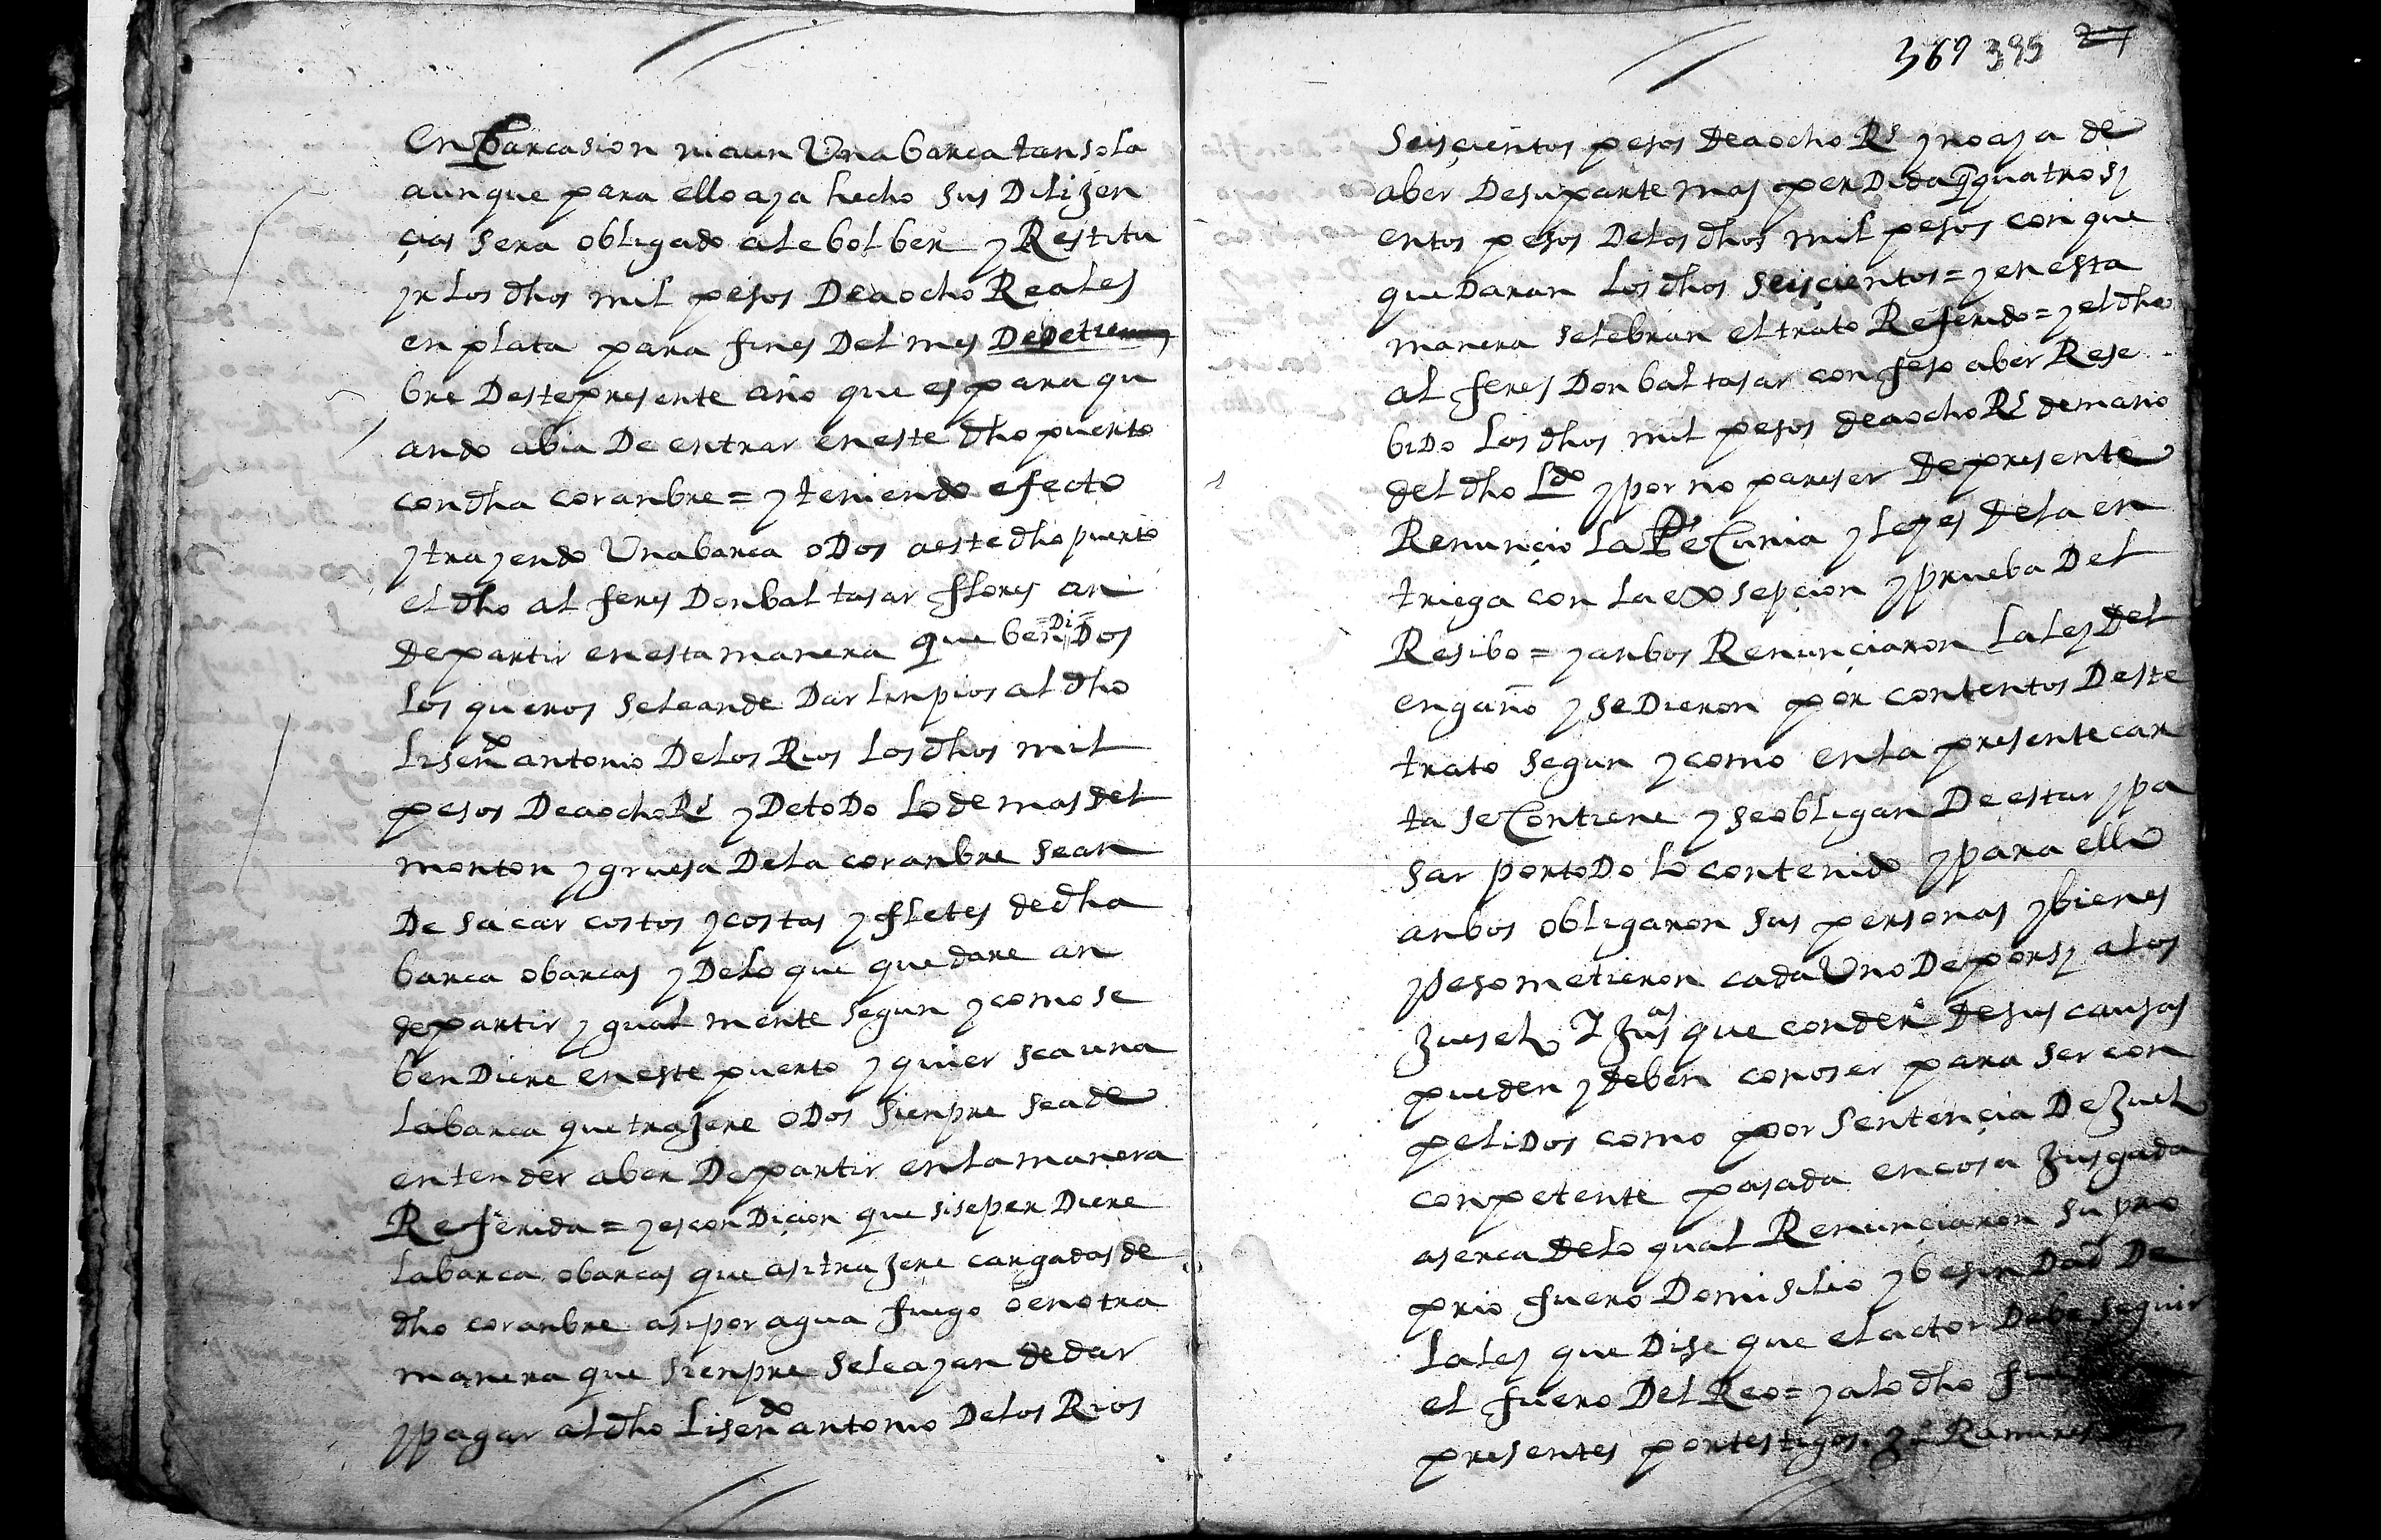 Enbarcasion ni aun Una barca tan sola
aunque para ello aya hecho sus Dilijen
çias sera obligado a le bolber y Restitu
yr los dhos mil pesos De a ocho Reales
en plata para fines Del mes De
bre Deste presente año que es para qu
ando abia De entrar en este dho puerto
con dha coranbre = y teniendo efecto
y trayendo Una barca o Dos a este dho puerto
el dho alferes Don baltasar flores an
de partir en esta manera que benDiDos
los queros se le an de Dar linpios al dho
Lisendo antonio De los Rios los dhos mil
pesos De a ocho Rs y De toDo lo demas del
monton y gruesa De la coranbre se an
De sacar costos y costas y fletes de dha
barca o barcas y De lo que quedare an
de partir ygualmente segun y como se
benDiere en este puerto y quier sea una
la barca que trajere o Dos sienpre se a de
entender aber De partir en la manera
Referida = y es conDiçion que si se perDiere
la barca o barcas que asi trajere cargados de
dho coranbre asi por agua fuego o en otra
manera que sienpre se le ayan de dar
y pagar al dho Lisendo antonio De los Rios
369 395 27
Seisçientos pesos De a ocho Rs y no aya de
aber De su parte mas perDida q quatrosi
entos pesos De los dhos mil pesos con que
queDaran los dhos seisçientos = y en esta
manera selebran el trato Referido = y el dho
alferes Don baltasar confeso aber Rese
biDo los dhos mil pesos de a ocho Rs de mano
del dho Ldo y por no pareser De presente
Renunçio la Pecunia y leyes De la en
triega con la exsepçion y prueba Del
Resibo = y anbos Renunçiaron la ley Del
engaño y se Dieron por contentos Deste
trato segun y como en la presente car
ta se Contiene y se obligan De estar y pa
sar por toDo lo contenido y para ello
anbos obligaron sus personas y bienes
y se sometieron cada Uno De por si a los
Jueses y Jusas que con dero De sus causas
pueden y deben conoser para ser con
peliDos como por sentençia De Juez
conpetente pasada en cosa Jusgada
aserca De lo qual Renunçiaron su pro
prio fuero Domisilio y besinDad De
la ley que Dise que el actor Debe seguir
el fuero Del Reo = y a lo dho
presentes por testigos Ju Ramires